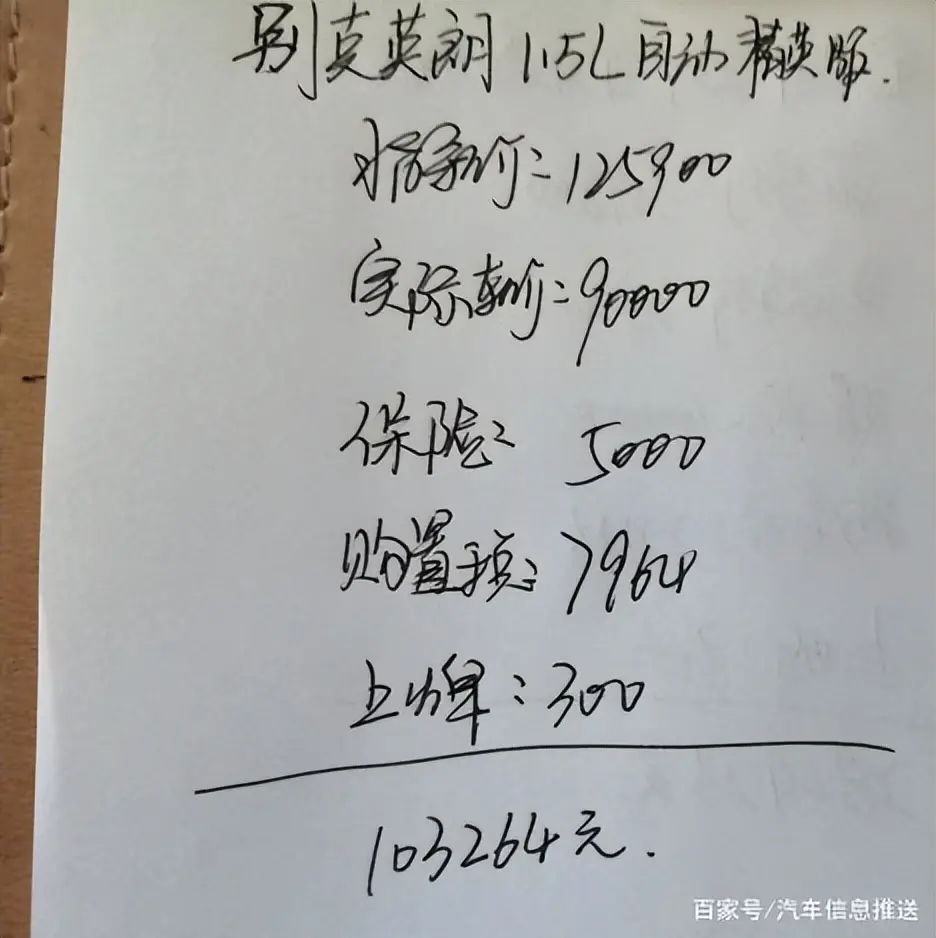 别克英朗 1.5L 自动精英版.
指导价：125900
实际车价：90000
保险： 5000
购置税：7964
上牌：300
103264元.
百家号/汽车信息推送